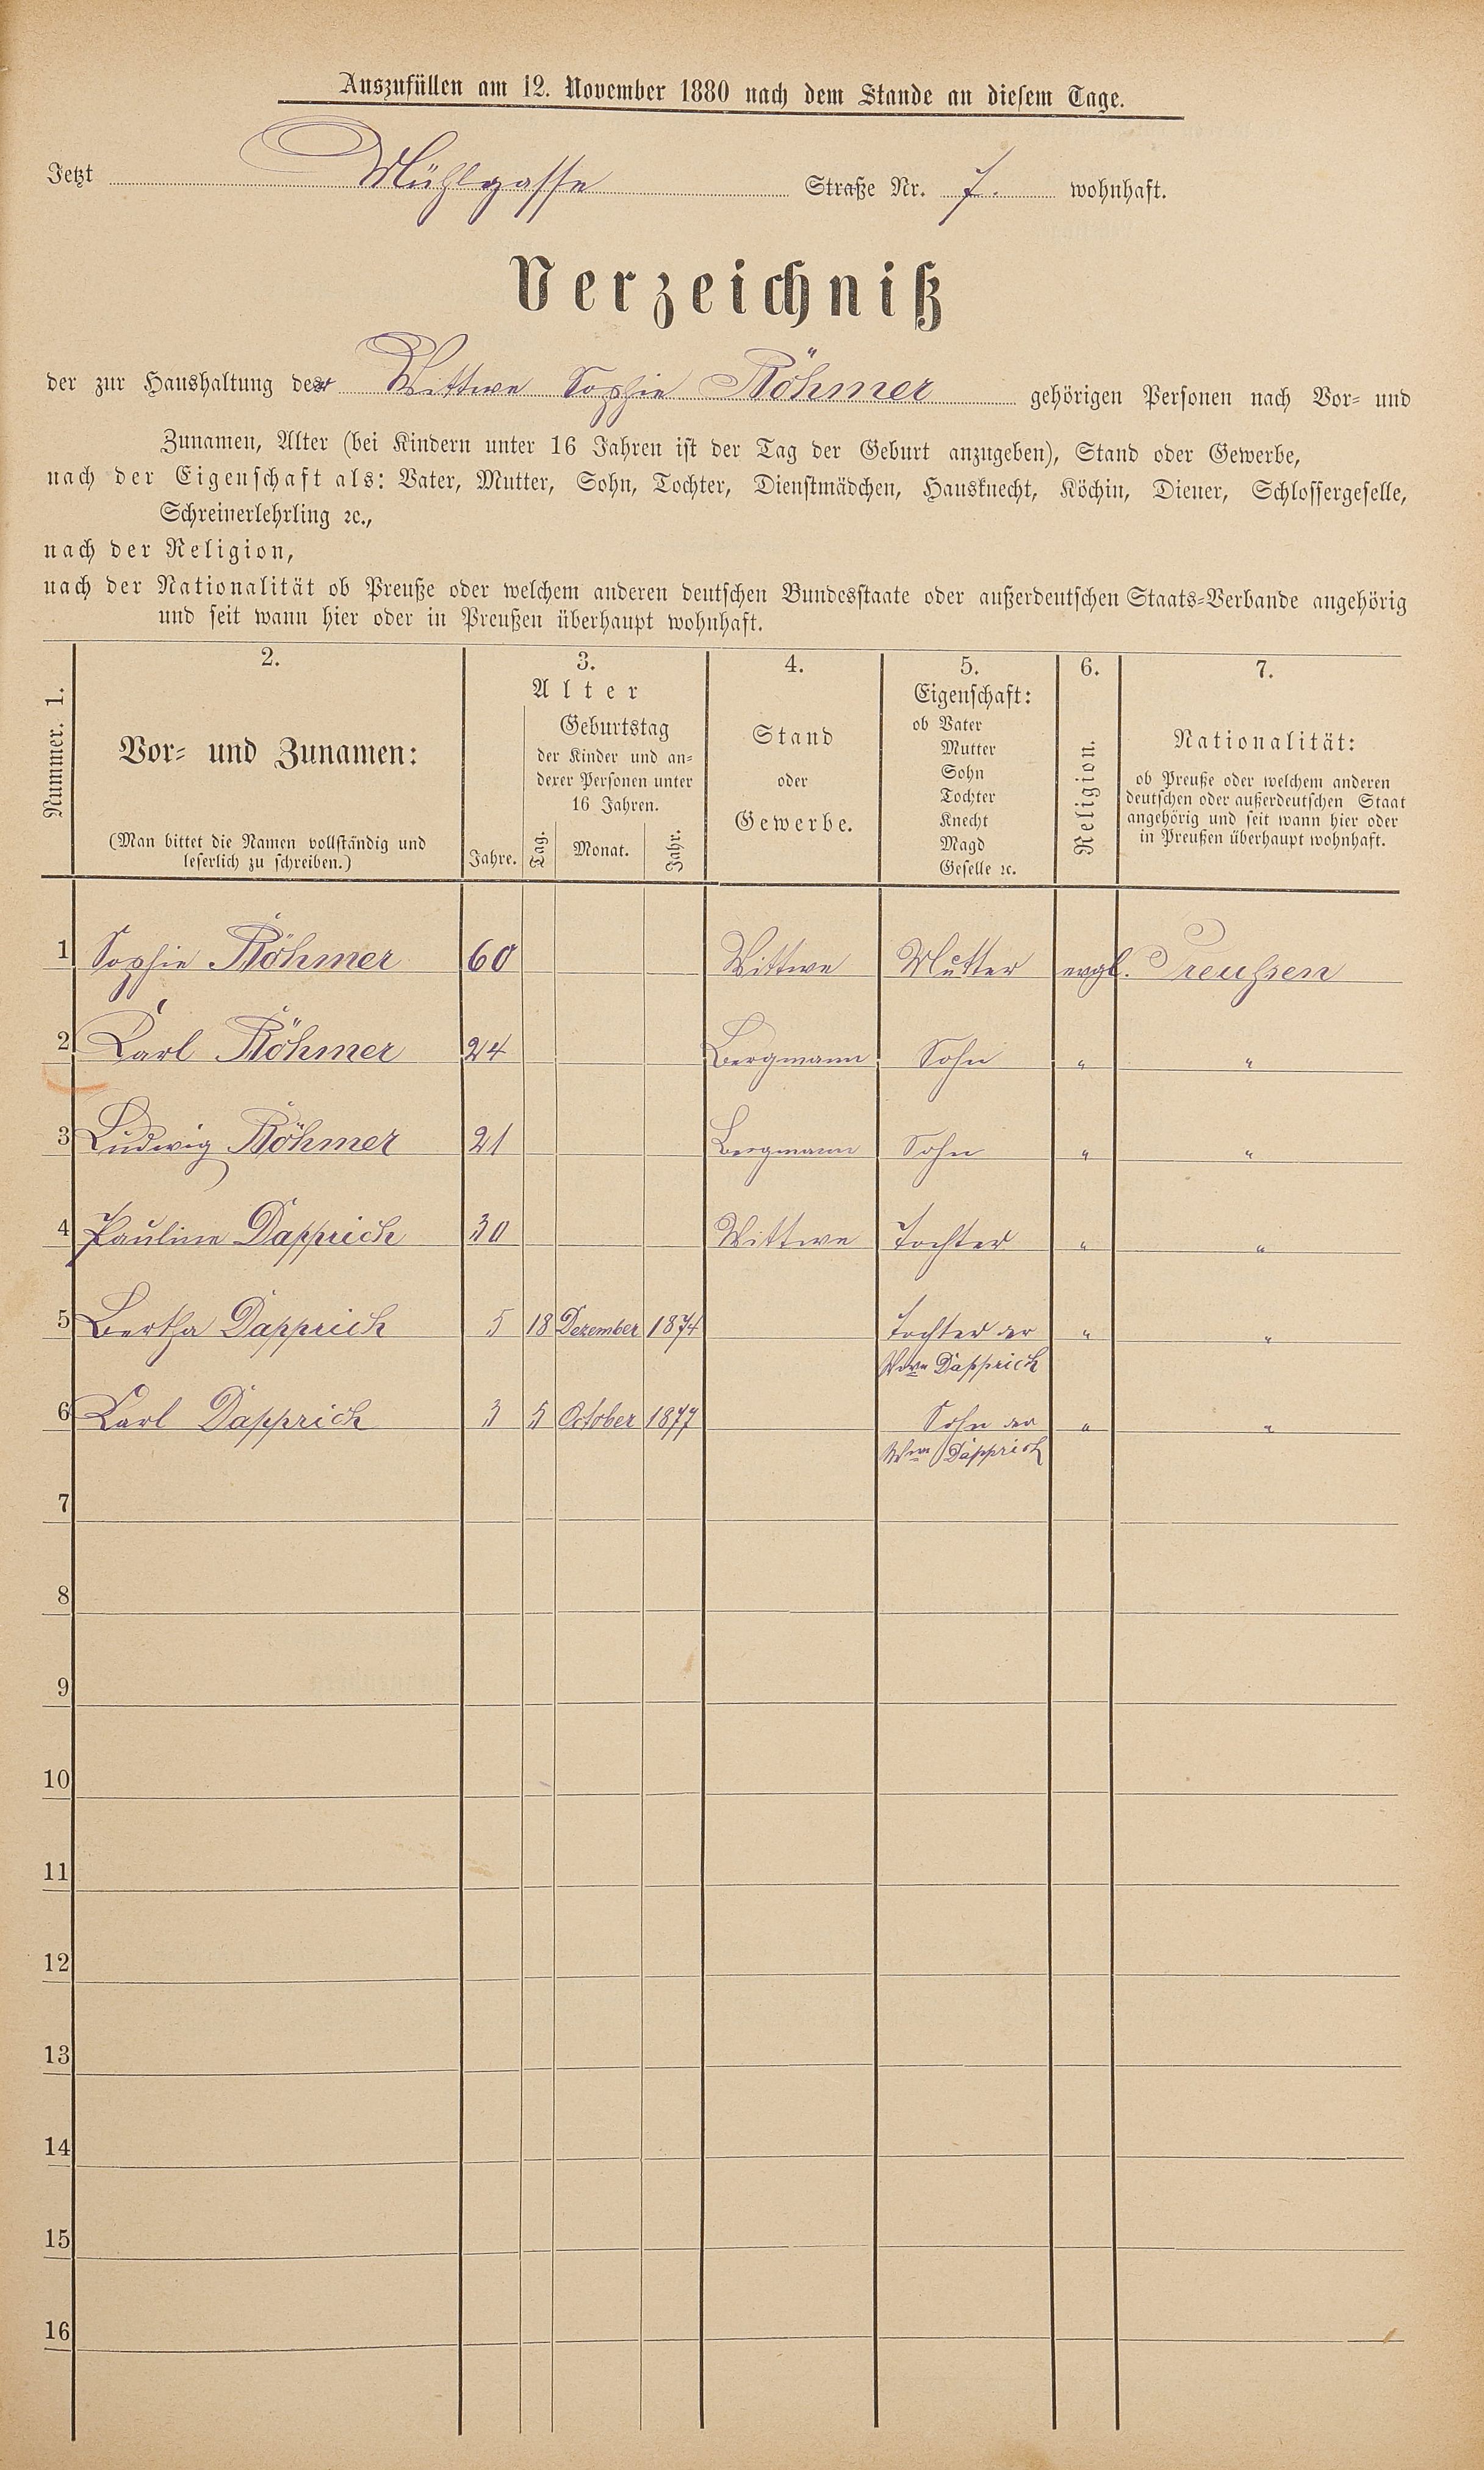 Auszufüllen am 12. November 1880 nach dem Stande an diesem Tage.
Jetzt Mühlgasse Straße Nr. 7. wohnhaft.
Verzeichniß
der zur Haushaltung der Wittwe Sophie Böhmer gehörigen Personen nach Vor- und
Zunamen, Alter (bei Kindern unter 16 Jahren ist der Tag der Geburt anzugeben), Stand oder Gewerbe,
nach der Eigenschaft als: Vater, Mutter, Sohn, Tochter, Dienstmädchen, Hausknecht, Köchin, Diener, Schlossergeselle,
Schreinerlehrling ꝛc.,
nach der Religion,
nach der Nationalität ob Preuße oder welchem anderen deutschen Bundesstaate oder außerdeutschen Staats-Verbande angehörig
und seit wann hier oder in Preußen überhaupt wohnhaft.
Nummer. 1.
2.
Vor- und Zunamen:
(Man bittet die Namen vollständig und
leserlich zu schreiben.)
3.
Alter
Jahre.
Geburtstag
der Kinder und an-
derer Personen unter
16 Jahren.
Tag. Monat. Jahr.
4.
Stand
oder
Gewerbe.
5.
Eigenschaft:
ob Vater
Mutter
Sohn
Tochter
Knecht
Magd
Geselle ꝛc.
6.
Religion.
7.
Nationalität:
ob Preuße oder welchem anderen
deutschen oder außerdeutschen Staat
angehörig und seit wann hier oder
in Preußen überhaupt wohnhaft.
1 Sophie Böhmer 60 Wittwe Mutter evgl. Preußen
2 Carl Böhmer 24 Bergmann Sohn " "
3 Ludwig Böhmer 21 Bergmann Sohn " "
4 Pauline Dapprich 30 Wittwe Tochter " "
5 Bertha Dapprich 5 18 Dezember 1874 Tochter der " "
Wwe Dapprich
6 Carl Dapprich 3 5 October 1877 Sohn der " "
Wwe Dapprich
7
8
9
10
11
12
13
14
15
16